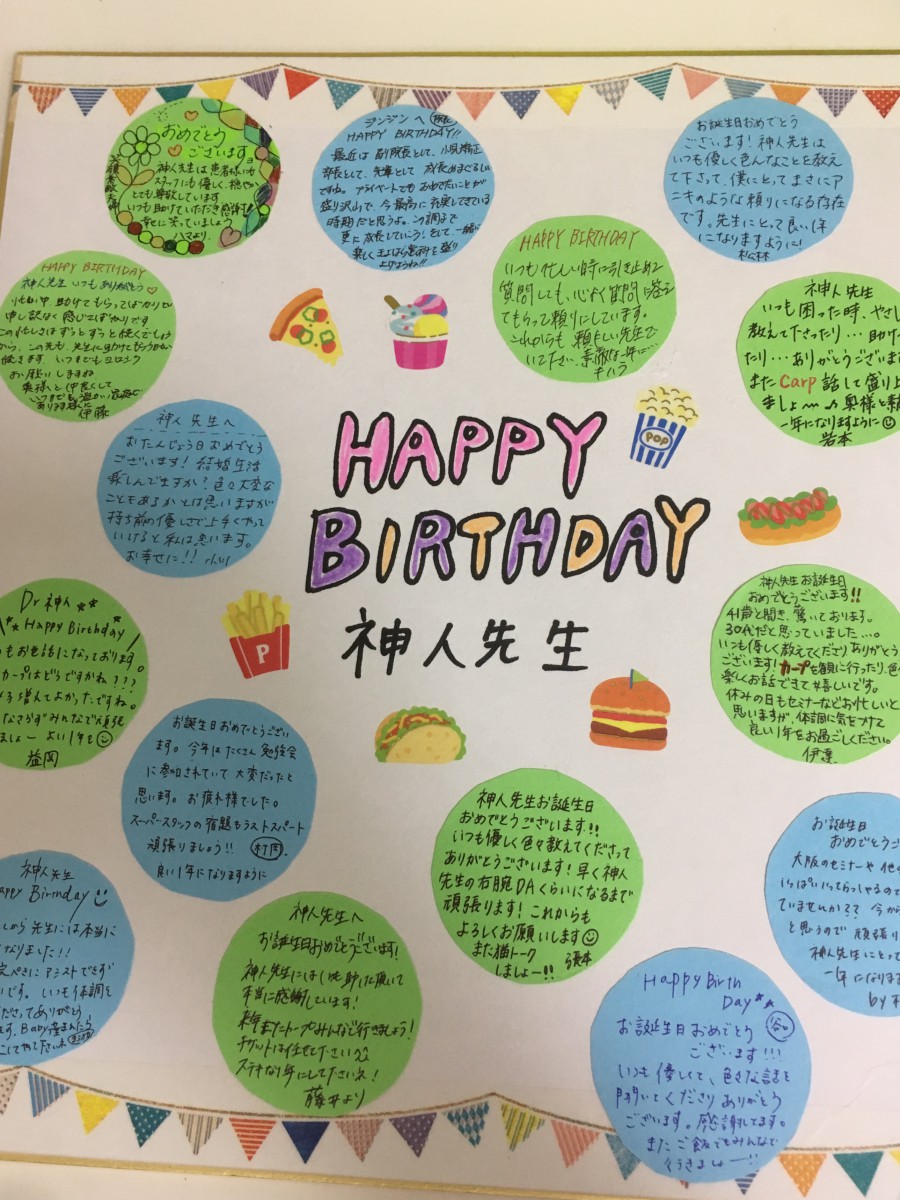 おめでとう
ございます。
神人先生は患者様にも
スタッフにも優しく、
とても尊敬しています
いつも助けていただき感謝です
幸せに笑っていましょう
ハマより
ジンジンへ
HAPPY BIRTHDAY!!
最近は副院長として、小児矯正
部長として、先輩として成長めまぐるしい
ですね。プライベートでもおめでたいことが
盛り沢山で、今最高に充実してきている
時期だと思うよ。この調子で
更に成長していこう!そして、一緒に
お誕生日おめでとう
ございます!神人先生は
いつも優しく色んなことを教え
て下さって、僕にとってまさにア
ニキのような頼りになる存在
です。先生にとって良い1年
になりますように!
松林
HAPPY BIRTHDAY
いつも忙しい時に引き止めて
質問しても、心よく質問に答え
てもらって頼りにしています。
これからも頼もしい先生で
いて下さい。素敵な一年に…
キハラ
HAPPY BIRTHDAY
神人先生いつもありがとう♡
忙しい中助けてもらってばかりで
申し訳なく感じてばかりです
この忙しさはずっとずっと続くでしょう
から、この先も、先生に助けてもらうのが
続きます いつまでもヨロシク
お願いしますね
奥様と仲良くして
いつまでも温かい家庭で
あります様に
伊藤
神人先生
いつも困った時、やさし
教えて下さったり…助け
たり…ありがとうございま
またCarp話して盛り上
ましょ〜♪奥様と素
一年になりますように☺
岩本
神人先生へ
おたんじょう日おめでとう
ございます!結婚生活
楽しんでますか?色々大変な
こともあるかとは思いますが
持ち前の優しさで上手くやって
いけると私は思います。
お幸せに!!
HAPPY
BIRTHDAY
神人先生
POP
P
Dr神人
Happy Birthday
もお世話になっております。
カープはどうですかね???
増えてよかったですね。
みんなで頑張
ましょー よい1年を☺
益岡
神人先生お誕生日
おめでとうございます!!
41歳と聞き、驚いております。
30代だと思っていました…。
いつも優しく教えてくださりありがとう
ございます!カープを観に行ったり、色
楽しくお話できて嬉しいです。
休みの日もセミナーなどお忙しいと
思いますが、体調に気をつけて
良い1年をお過ごしください。
伊達
お誕生日おめでとうござい
ます。今年はたくさん勉強会
に参加されていて大変だったと
思います。お疲れ様でした。
スーパースタッフの宿題もラストスパート
頑張りましょう!!
良い1年になりますように
神人先生お誕生日
おめでとうございます!!
いつも優しく色々教えてくださって
ありがとうございます!早く神人
先生の右腕DAくらいになるまで
頑張ります!これからも
よろしくお願いします☺
また猫トーク
しましょー!!
張本
お誕生日
おめでとうご
大阪のセミナーや他の
いっぱいいってらっしゃるので
ていませんか??今か
と思うので頑張り
神人先生にとって
一年になります
by
神人先生
appy Birthday
しから先生には本当に
なりました!!
ぺきにアシストできず
いです。いつも体調を
ださってありがとう
ます。Baby産まれたら
神人先生へ
お誕生日おめでとうございます!
神人先生にはいつも助けて頂いて
本当に感謝しています!
来年またカープみんなで行きましょう!
チケットは任せて下さい
ステキな1年にして下さいネ!
藤井より
Happy Birth
Day
谷口
お誕生日おめでとう
ございます!!!
いつも優しくて、色々な話を
聞いてくださりありがとう
ございます。感謝してます。
またご飯でもみんなで
行きましょー!!